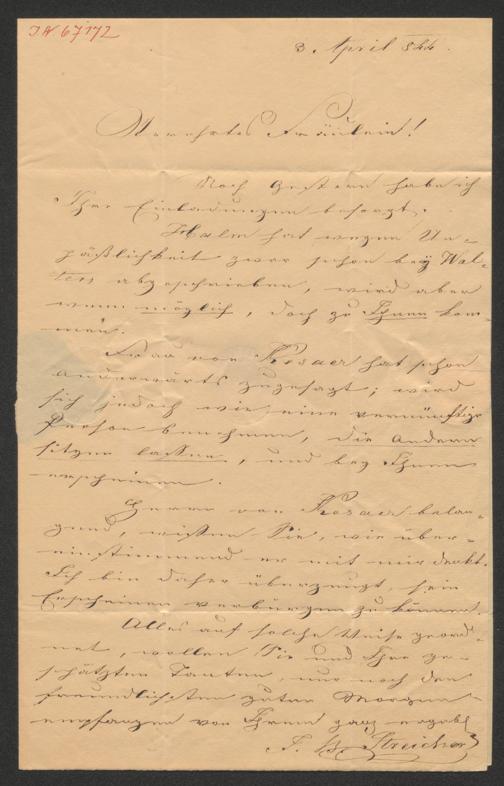 IN 67172
3. April 844.
Verehrtes Fräulein!
Noch gestern habe ich
Ihre Einladungen besorgt.
Halm hat wegen Un-
päßlichkeit zwar schon bey Wal-
ters abgeschrieben, wird aber
wenn möglich, doch zu Ihnen kom-
men.
Frau von
hat schon
anderwärts zugesagt; wird
sich jedoch wie eine vernünftige
Person benehmen, die Andern
sitzen lassen, und bey Ihnen
erscheinen.
Herrn von
belan-
gend, wissen Sie, wie über-
einstimmend er mit mir denkt.
Ich bin daher überzeugt, sein
Erscheinen verbürgen zu können.
Alles auf solche Weise geord-
net, wollen Sie und Ihre ge-
schätzten Tanten, nur noch den
freundlichsten guten Morgen
empfangen von Ihrem ganz ergebs
J. B. Streicher